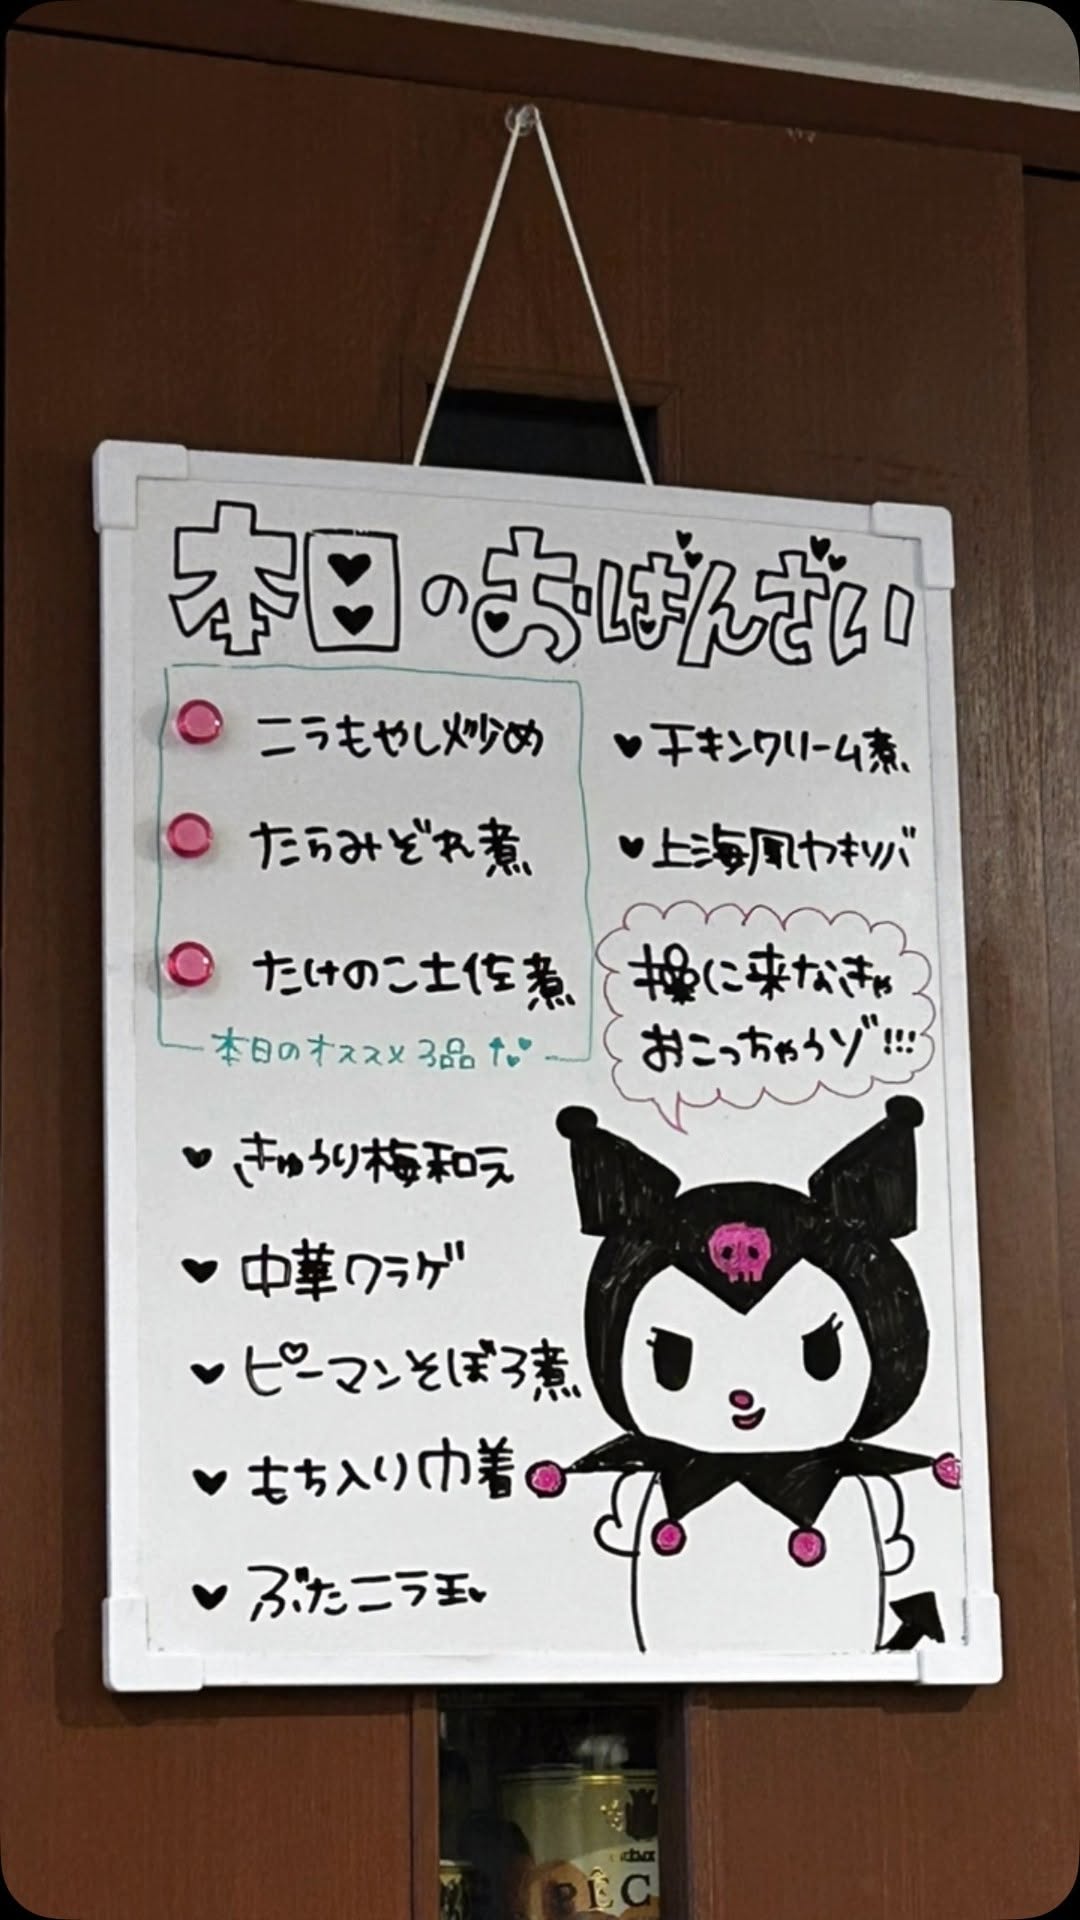 本日のおばんざい
ニラもやし炒め
たらみぞれ煮
たけのこ土佐煮
本日のオススメ3品
きゅうり梅和え
中華クラゲ
ピーマンそぼろ煮
もち入り巾着
ぶたニラ玉
チキンクリーム煮
上海風ヤキソバ
操に来なきゃ
おこっちゃうゾ!!!